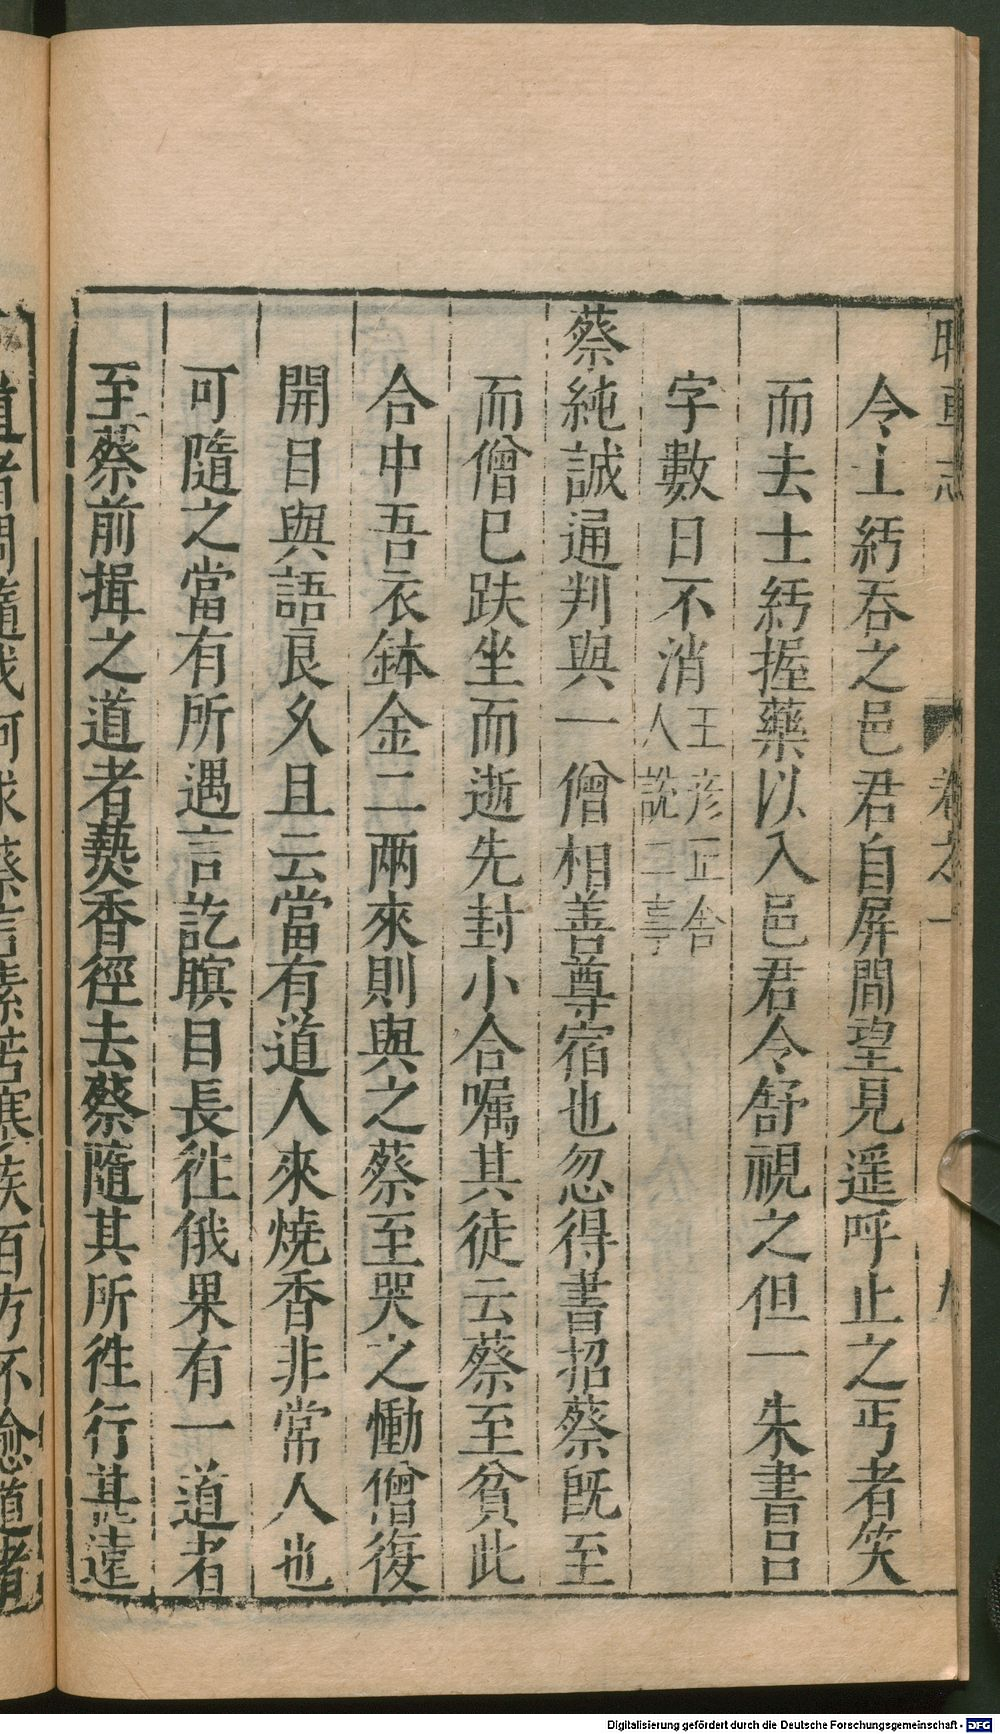 令士紆吞之邑君自屏間望見遥呼止之丐者笑
而去士紆握藥以入邑君令舒視之但一朱書呂
字數日不消王彦正舍人說二事
蔡純誠通判與一僧相善尊宿也忽得書招蔡既至
而僧巳趺坐而逝先封小合嘱其徒云蔡至貧此
合中吾衣鉢金二兩來則與之蔡至哭之慟僧復
開目與語良乆且云當有道人來燒香非常人也
可隨之當有所遇言訖瞑目長徃俄果有一道者
至蔡前揖之道者爇香徑去蔡隨其所徃行甚遠
車志
卷之一
九
道者問隨我何求蔡言素苦寒疾百方不愈道者
Digitalisierung gefördert durch die Deutsche Forschungsgemeinschaft - DFG